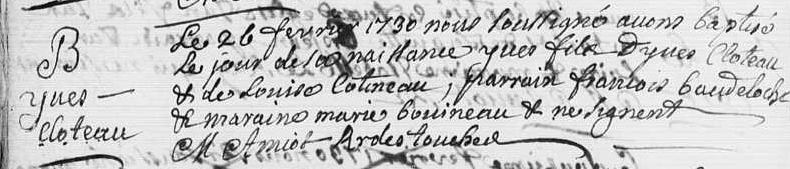 B
yves
Cloteau
Le 26 fevrier 1730 nous soussigné avons baptisé
Le jour de sa naissance yves fils Dyves Cloteau
& de Louise Cotineau, parrain francois baudeloche
& maraine marie bouineau & ne signent
M Amiot Ardestouches